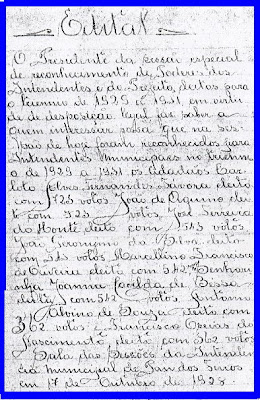 Edital
O Presidente da sessão especial
de reconhecimento de Poderes dos
Intendentes e do Prefeito, eleitos para
o triennio de 1929 a 1931 em virtu
de de disposição legal faz saber a
quem interessar possa que na ses-
são de hoje foram reconhecidos para
Intendentes Municipaes no triennio
de 1929 a 1931 os cidadãos
Fernandes Tavora eleito
com 525 votos João de Aquino elei
to com 525 votos José Ferreira
do Monte eleito com 543 votos
José Jeronymo da Silva eleito
com 543 votos Marcellino Francisco
de Oliveira eleito com 542 Senhori
nha Joanna de Bessa
eleita com 542 votos Antonio
de Souza eleito com
562 votos e Francisco
Nascimento eleito com 562 votos
Sala das Sessões da Intenden
cia Municipal de Pau dos Ferros
em 17 de Outubro de 1928.